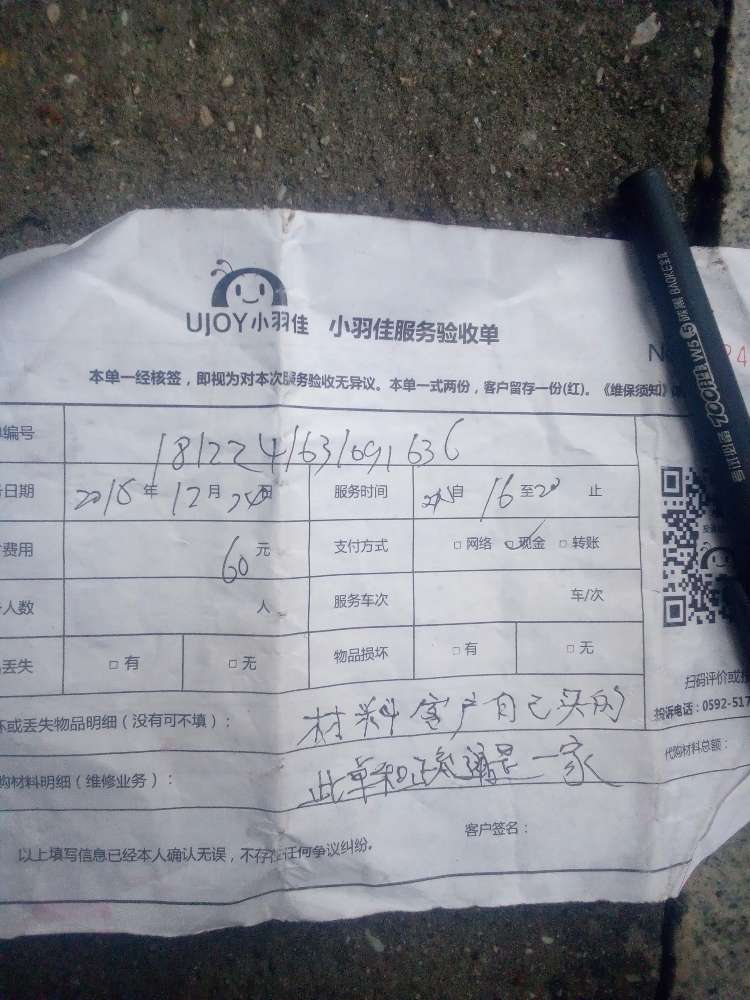 UJOY小羽佳 小羽佳服务验收单
本单一经核签，即视为对本次服务验收无异议。本单一式两份，客户留存一份(红)。《维保须知》
编号 1812241631091636
日期 2018年 12月 24日 服务时间 自 16 至 20 止
费用 60 元 支付方式 □ 网络 ☑ 现金 □ 转账
人数 人 服务车次 车/次
丢失 □ 有 □ 无 物品损坏 □ 有 □ 无
扫码评价或
坏或丢失物品明细（没有可不填）： 材料客户自己买的 投诉电话：0592-517
购材料明细（维修业务）： 此单和 是一家 代购材料总额：
客户签名：
以上填写信息已经本人确认无误，不存在任何争议纠纷。
BAOKE宝克